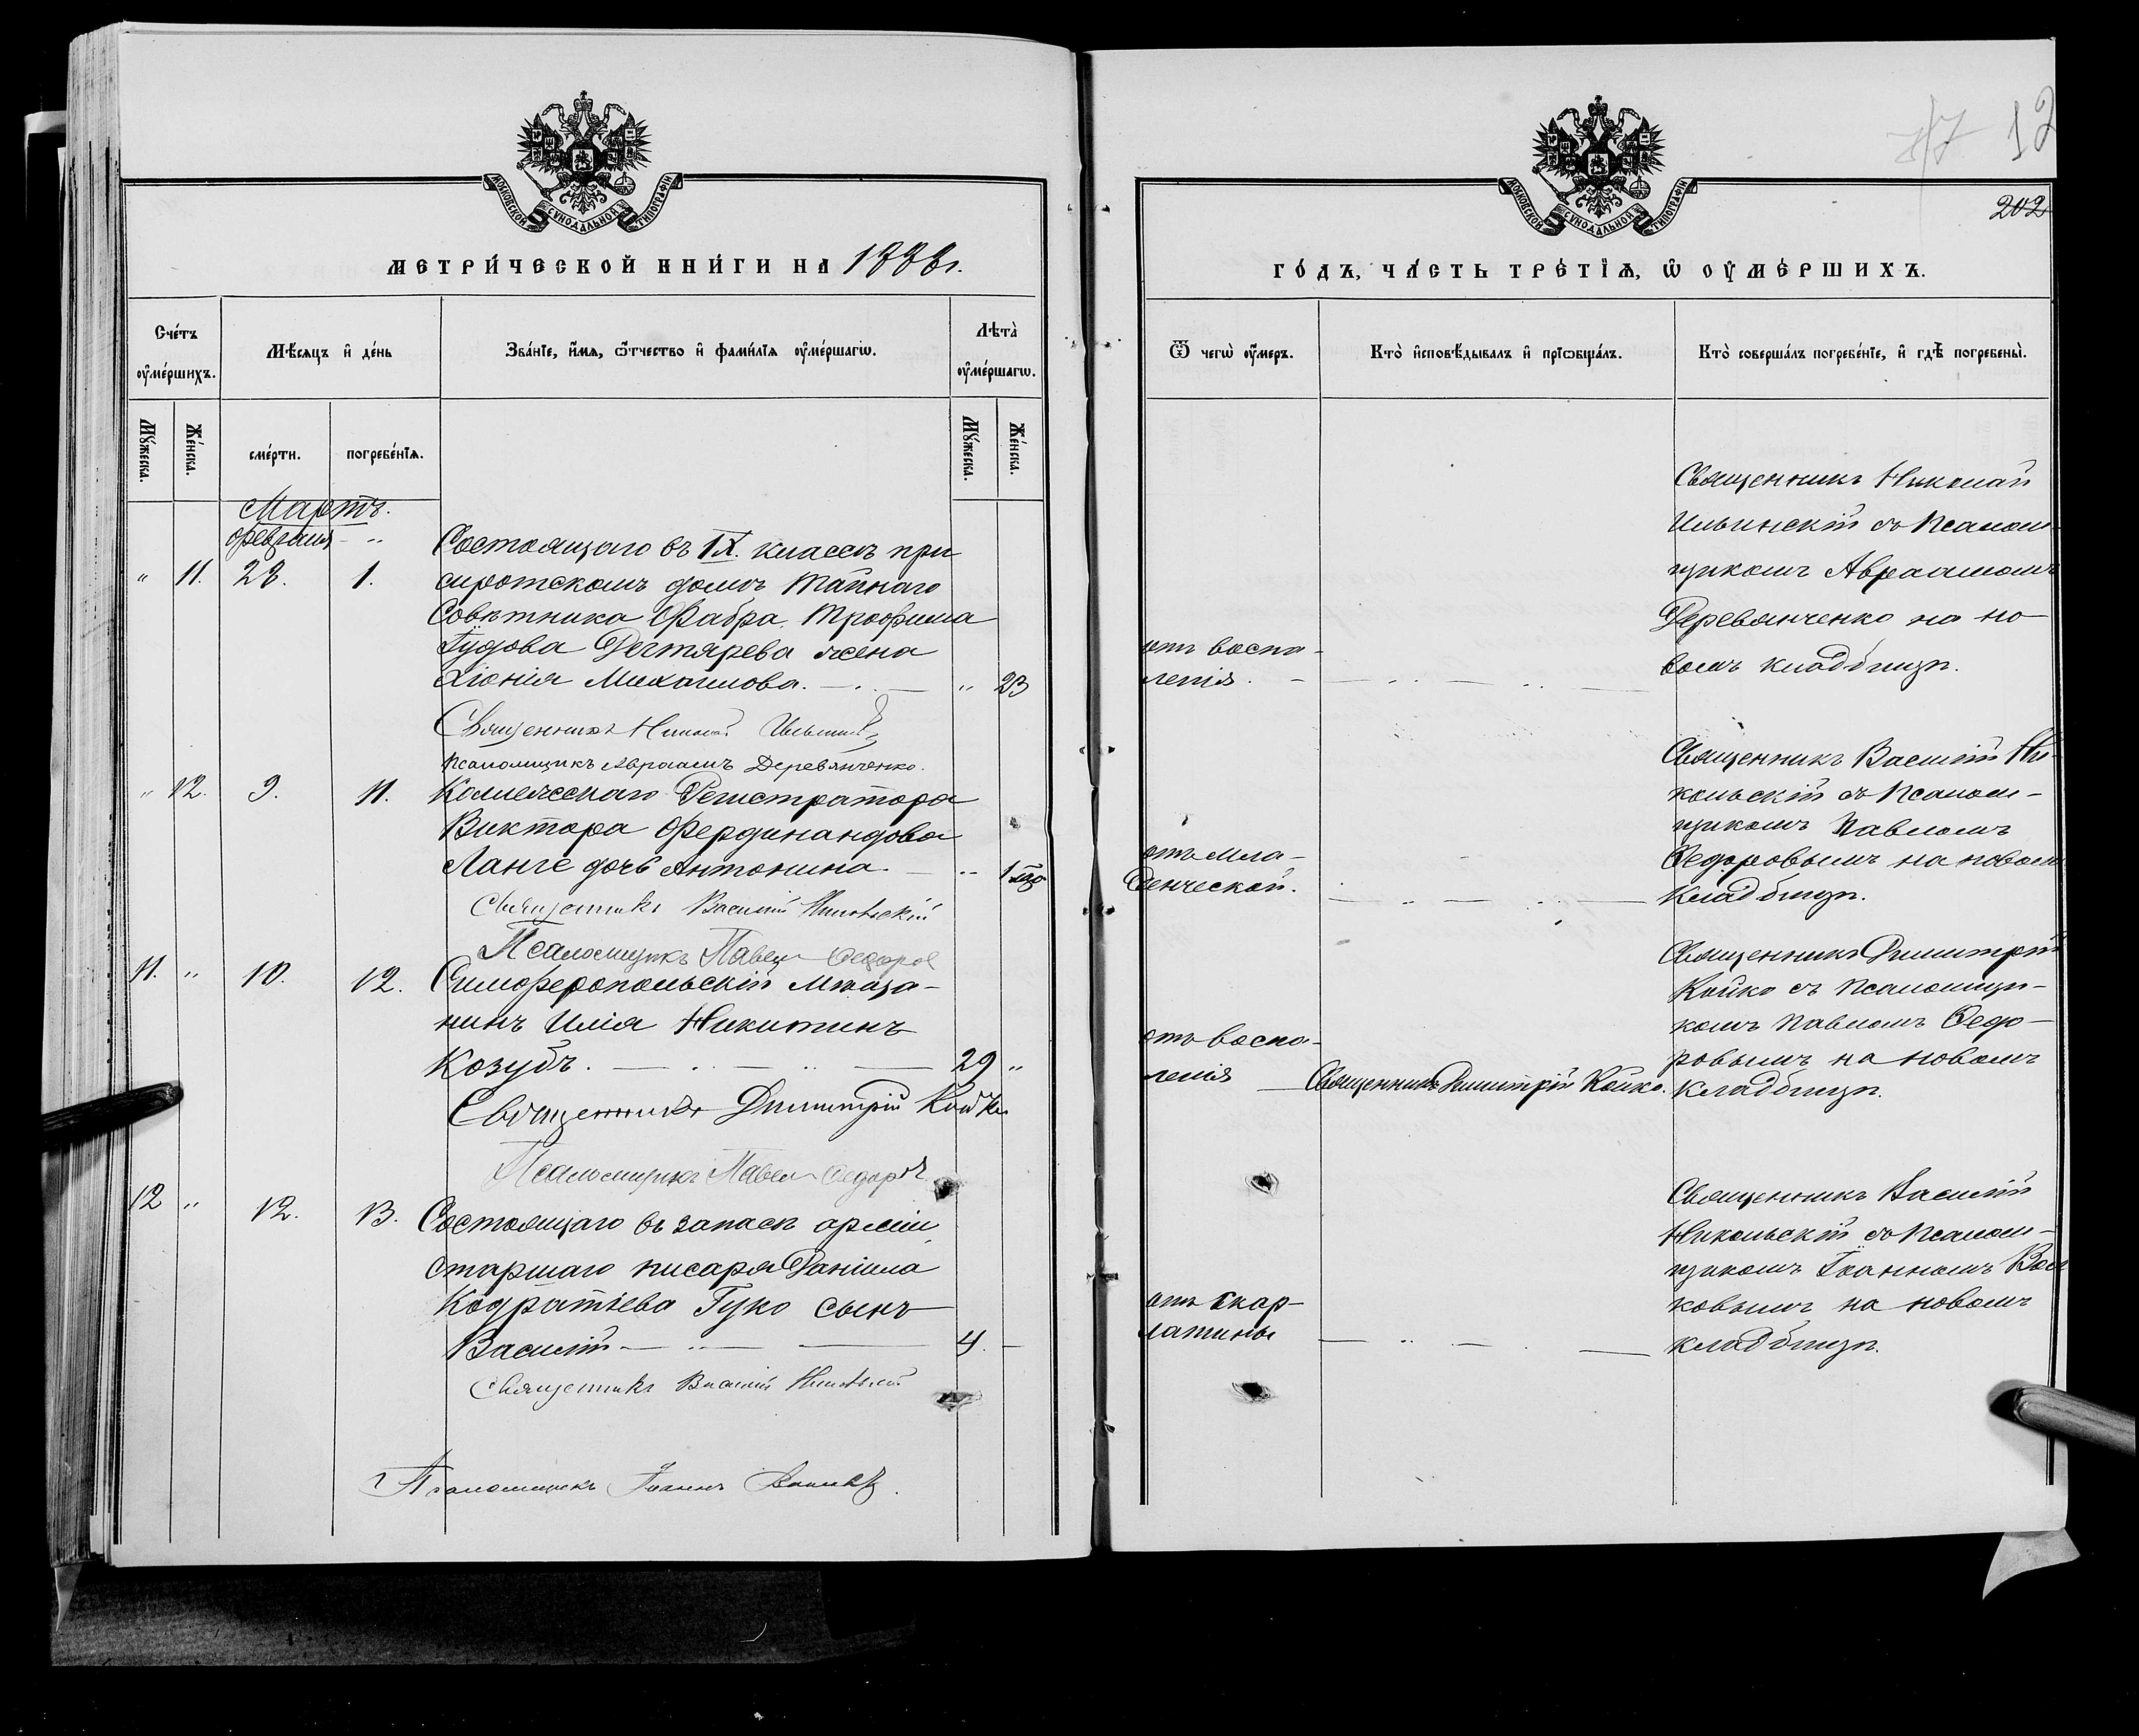 МОСКОВСКОЙ СѴНОДАЛЬНОЙ ТИПОГРАФІИ
МЕТРИ́ЧЕСКОЙ КНИ́ГИ НА 1888 г.
Сче́тъ ᲂу҆ме́ршихъ.
Мѣ́сяцъ и҆ де́нь
Зва́нїе, и҆́мя, ѻ҆́тчество и҆ фами́лїя ᲂу҆ме́ршагѡ.
Лѣта̀ ᲂу҆ме́ршагѡ.
Мꙋ́жеска.
Же́нска.
сме́рти.
погребе́нїѧ.
Мꙋ́жеска.
Же́нска.
Мартъ.
февраля - "
" 11. 28. 1.
Состоящаго въ IX. классѣ при
сиротскомъ домѣ Тайнаго
Совѣтника Фабра. Трофима
Гудова Дегтярева жена
Хіонія Михаилова. " 23
Священникъ Николай Ильинскій
Псаломщикъ Авраамъ Деревянченко.
" 12. 9. 11.
Коллежскаго Регистратора
Виктора Фердинандова
Ланге дочь Антонина. " 1 год
Священникъ Василій Никольскій
Псаломщикъ Павелъ Федоров
11. " 10. 12.
Симферопольскій Мѣща-
нинъ Илія Никитинъ
Козубъ. 29 "
Священникъ Димитрій Койко
Псаломщикъ Павелъ Федоровъ
12 " 12. 13.
Состоящаго въ запасѣ арміи,
старшаго писаря Даніила
Кодратіева Гуко сынъ
Василій 4. -
Священникъ Василій Никольскій
Псаломщикъ Іоаннъ
12
202
МОСКОВСКОЙ СѴНОДАЛЬНОЙ ТИПОГРАФІИ
ГО́ДЪ, ЧА́СТЬ ТРЕ́ТЇѦ, Ѡ҆ ОУ҆МЕ́РШИХЪ.
Ѿ чегѡ̀ ᲂу҆́меръ.
Кто̀ и҆сповѣ́дывалъ и҆ прїѡбща́лъ.
Кто̀ соверша́лъ погребе́нїе, и҆ гдѣ̀ погребены̀.
отъ воспа-
ленія.
Священникъ Николай
Ильинскій съ Псалом-
щикомъ Авраамомъ
Деревянченко на но-
вомъ кладбищѣ.
отъ Мла-
денческой.
Священникъ Василій Ни-
кольскій съ Псалом-
щикомъ Павломъ
Федоровымъ на новомъ
Кладбищѣ.
отъ воспа-
ленія
Священникъ Димитрій Койко.
Священникъ Димитрій
Койко съ Псаломщи-
комъ Павломъ Федо-
ровымъ на новомъ
Кладбищѣ.
отъ Скар-
латины
Священникъ Василій
Никольскій съ Псалом-
щикомъ Іоанномъ
ковымъ на новомъ
кладбищѣ.